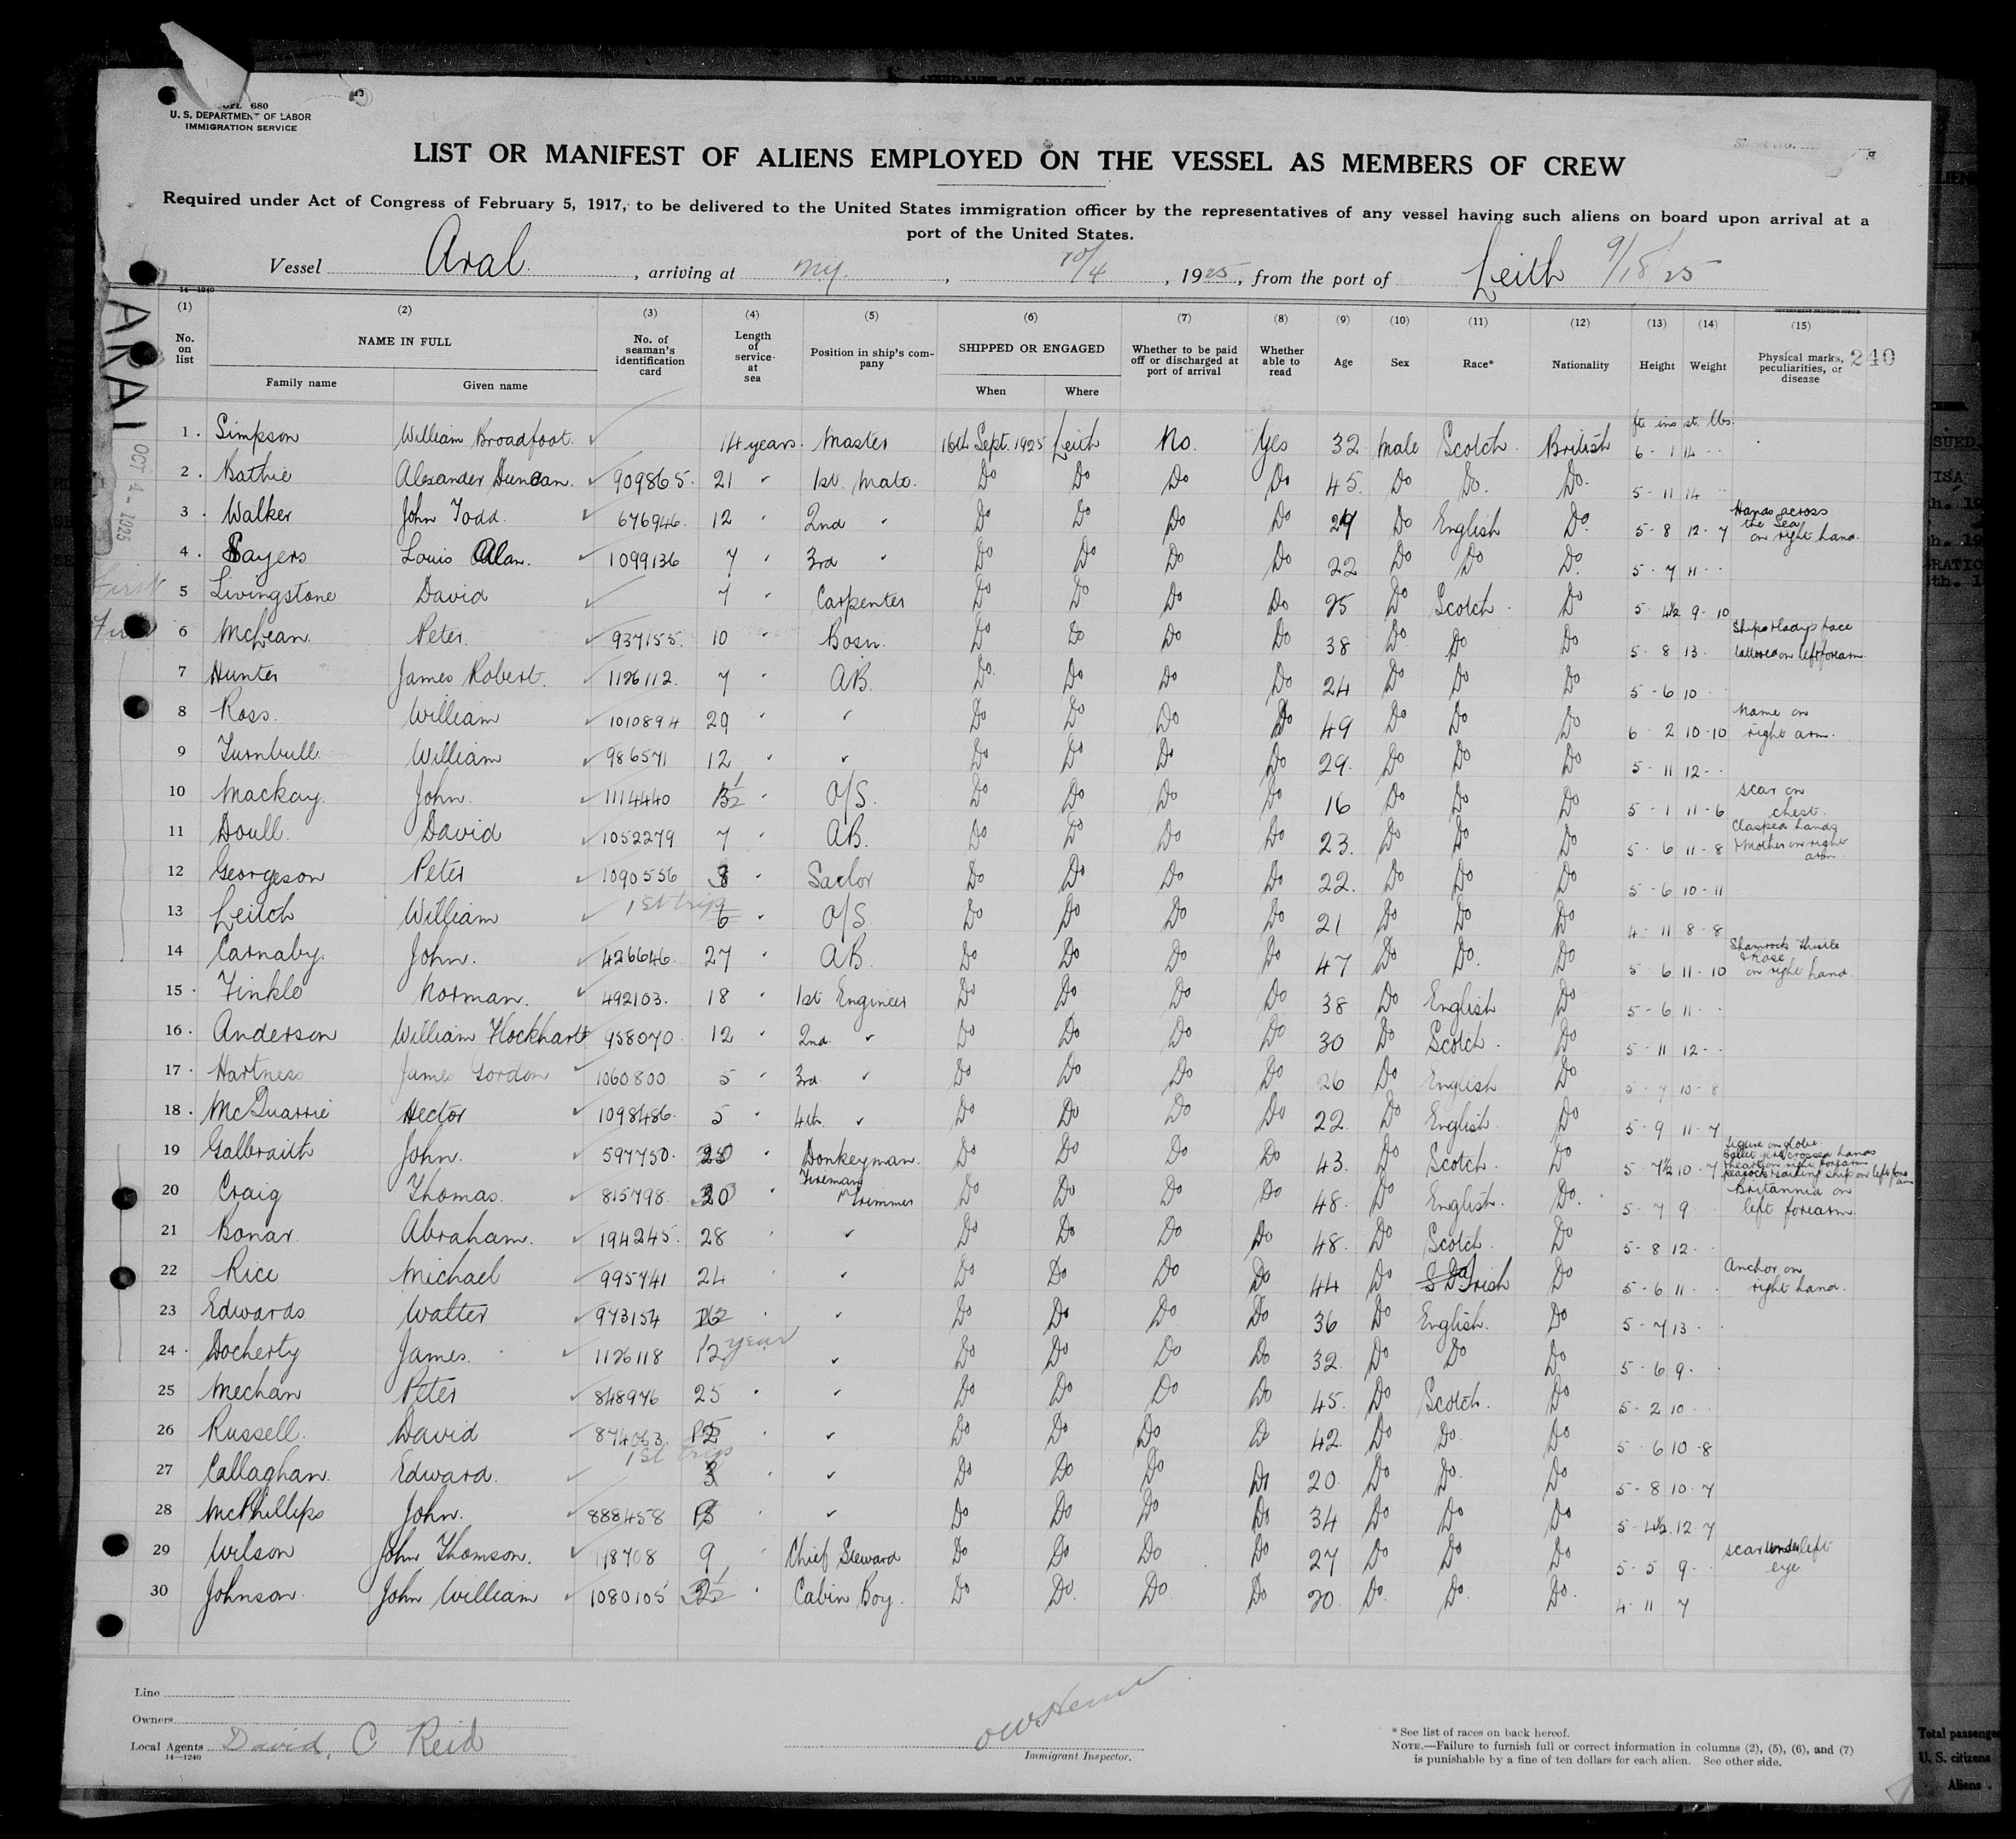 680
U. S. DEPARTMENT OF LABOR
IMMIGRATION SERVICE
LIST OR MANIFEST OF ALIENS EMPLOYED ON THE VESSEL AS MEMBERS OF CREW
Required under Act of Congress of February 5, 1917, to be delivered to the United States immigration officer by the representatives of any vessel having such aliens on board upon arrival at a
port of the United States.
Vessel Aral , arriving at NY , 10/4 , 1925, from the port of Leith 9/18/25
14—1240
GOVERNMENT PRINTING OFFICE
(1) (2) (3) (4) (5) (6) (7) (8) (9) (10) (11) (12) (13) (14) (15)
No. on list NAME IN FULL Family name Given name No. of seaman's identification card Length of service at sea Position in ship's company SHIPPED OR ENGAGED When Where Whether to be paid off or discharged at port of arrival Whether able to read Age Sex Race* Nationality Height Weight Physical marks, peculiarities, or disease 240
ft ins st. lbs
1 Simpson William Broadfoot 14 years Master 16th Sept. 1925 Leith No. Yes 32 Male Scotch British 6 - 1 14
2 Bathie Alexander Duncan 909865 21 " 1st Mate Do Do Do Do 45 Do Do Do 5 - 11 14
3 Walker John Todd 676946 12 " 2nd " Do Do Do Do 29 Do English Do 5 - 8 12 - 7 Hands across the Sea on right hand
4 Sayers Louis Alan 1099136 7 " 3rd " Do Do Do Do 22 Do Do Do 5 - 7 11
5 Livingstone David 7 " Carpenter Do Do Do Do 25 Do Scotch Do 5 - 4½ 9 - 10
6 McLean Peter 937155 10 " Bosn. Do Do Do Do 38 Do Do Do 5 - 8 13 Ship & lady's face tattooed on left forearm
7 Hunter James Robert 1126112 7 " AB. Do Do Do Do 24 Do Do Do 5 - 6 10
8 Ross William 1010894 29 " " Do Do Do Do 49 Do Do Do 6 2 10 - 10 Name on right arm.
9 Turnbull William 986571 12 " " Do Do Do Do 29 Do Do Do 5 - 11 12
10 Mackay John 1114440 1½ " O/S. Do Do Do Do 16 Do Do Do 5 - 1 11 - 6 scar on chest
11 Doull David 1052279 7 " AB. Do Do Do Do 23 Do Do Do 5 - 6 11 - 8 Clasped hands & Mother on right arm
12 Georgeson Peter 1090556 3 " Sailor Do Do Do Do 22 Do Do Do 5 - 6 10 - 11
13 Leitch William 1st trip 6 " O/S. Do Do Do Do 21 Do Do Do 4 - 11 8 - 8
14 Carnaby John 426646 27 " AB. Do Do Do Do 47 Do Do Do 5 6 11 - 10 Shamrock thistle & Rose on right hand
15 Finkle Norman 492103 18 " 1st Engineer Do Do Do Do 38 Do English Do 5 - 6 11
16 Anderson William Hockhart 958070 12 " 2nd " Do Do Do Do 30 Do Scotch Do 5 - 11 12
17 Hartness James Gordon 1060800 5 " 3rd " Do Do Do Do 26 Do English Do 5 - 7 10 - 8
18 McQuarrie Hector 1098486 5 " 4th " Do Do Do Do 22 Do English Do 5 - 9 11 - 7
19 Galbraith John 597750 " Donkeyman Do Do Do Do 43 Do Scotch Do 5 - 7½ 10 - 7 figure on globe ballet girl crossed hands & heart on right forearm peacock & sailing ship on left forearm
20 Craig Thomas 815798 " Fireman & Trimmer Do Do Do Do 48 Do English Do 5 - 7 9 Britannia on left forearm
21 Bonar Abraham 194245 28 " " Do Do Do Do 48 Do Scotch Do 5 - 8 12
22 Rice Michael 995741 24 " " Do Do Do Do 44 Do Irish Do 5 - 6 11 Anchor on right hand.
23 Edwards Walter 973154 " " Do Do Do Do 36 Do English Do 5 - 7 13
24 Docherty James 1126118 12 year " Do Do Do Do 32 Do Do Do 5 - 6 9
25 Mechan Peter 848976 25 " " Do Do Do Do 45 Do Scotch Do 5 - 2 10
26 Russell David 874063 " " Do Do Do Do 42 Do Do Do 5 6 10 - 8
27 Callaghan Edward 1st trip 3 " " Do Do Do Do 20 Do Do Do 5 - 8 10 - 7
28 McPhillips John 888458 " Do Do Do Do 34 Do Do Do 5 - 4½ 12 - 7
29 Wilson John Thomson 118708 9 " Chief Steward Do Do Do Do 27 Do Do Do 5 - 5 9 scar under left eye
30 Johnson John William 1080105 " Cabin Boy Do Do Do Do 20 Do Do Do 4 - 11 7
ARAL
OCT 4 - 1925
First
Line
Owners
Local Agents David, C Reid
14—1240
Immigrant Inspector.
* See list of races on back hereof.
NOTE.—Failure to furnish full or correct information in columns (2), (5), (6), and (7)
is punishable by a fine of ten dollars for each alien. See other side.
Total passenge
U. S. citizens
Aliens